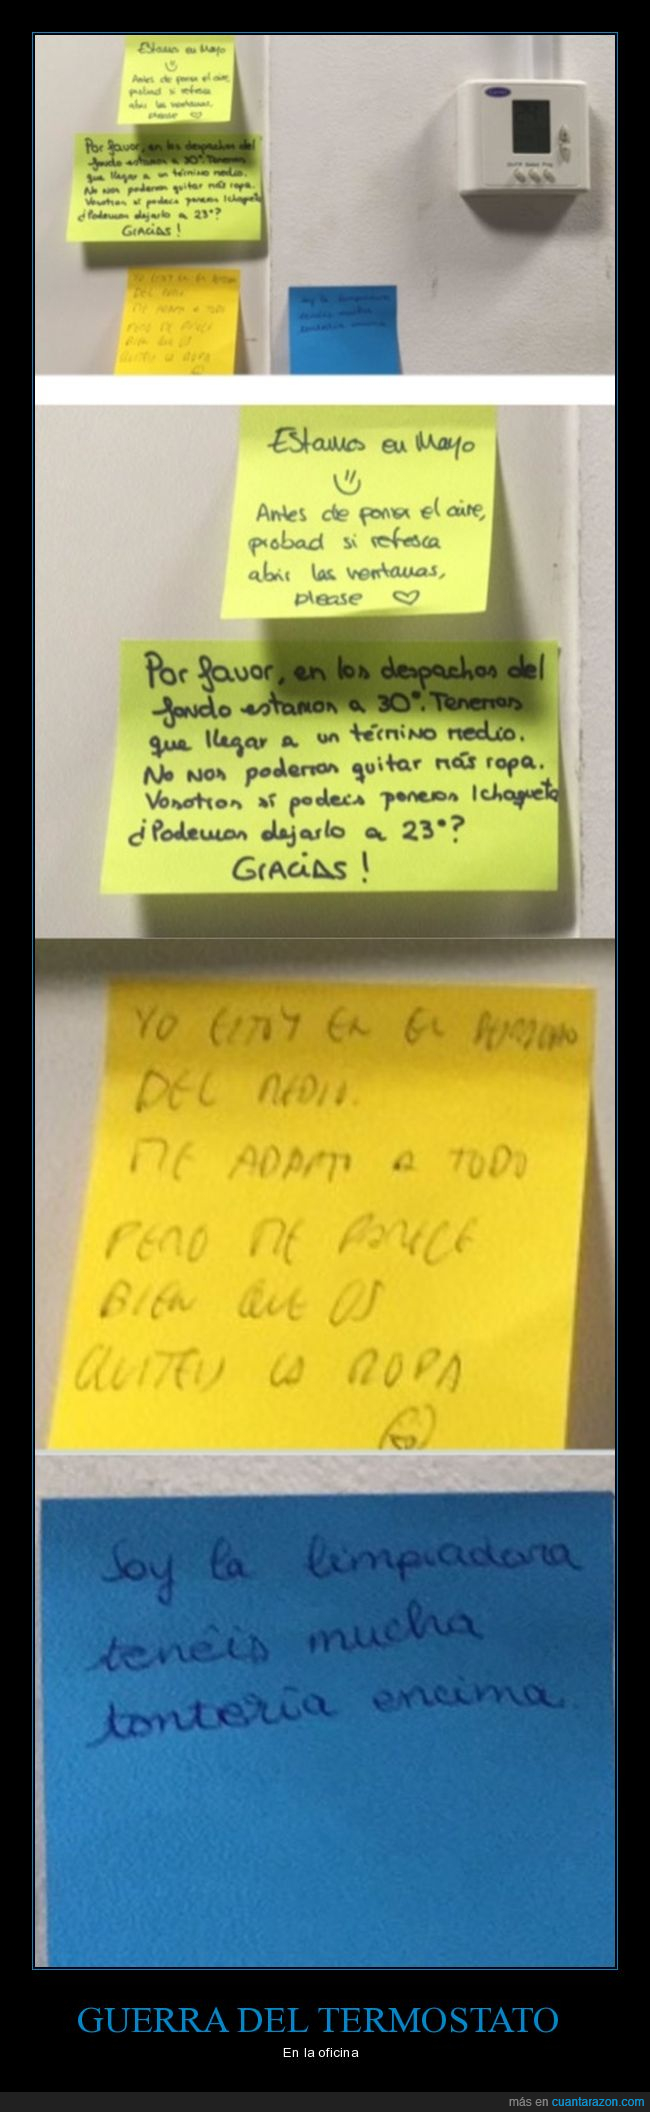 Estamos en Mayo
Antes de poner el aire,
probad si refresca
abrir las ventanas,
please ♡
Por favor, en los despachos del
fondo estamos a 30°. Tenemos
que llegar a un término medio.
No nos podemos quitar más ropa.
Vosotros sí podeis poneros 1 chaqueta
¿Podemos dejarlo a 23°?
GRACIAS!
YO ESTOY EN EL DESPACHO
DEL MEDIO.
ME ADAPTO A TODO
PERO ME PARECE
BIEN QUE OS
QUITEIS LA ROPA
Estamos en Mayo
Antes de poner el aire,
probad si refresca
abrir las ventanas,
please ♡
Por favor, en los despachos del
fondo estamos a 30°. Tenemos
que llegar a un término medio.
No nos podemos quitar más ropa.
Vosotros sí podeis poneros 1 chaqueta
¿Podemos dejarlo a 23°?
GRACIAS!
YO ESTOY EN EL DESPACHO
DEL MEDIO.
ME ADAPTO A TODO
PERO ME PARECE
BIEN QUE OS
QUITEIS LA ROPA
Soy la limpiadora
tenéis mucha
tontería encima.
GUERRA DEL TERMOSTATO
En la oficina
más en cuantarazon.com